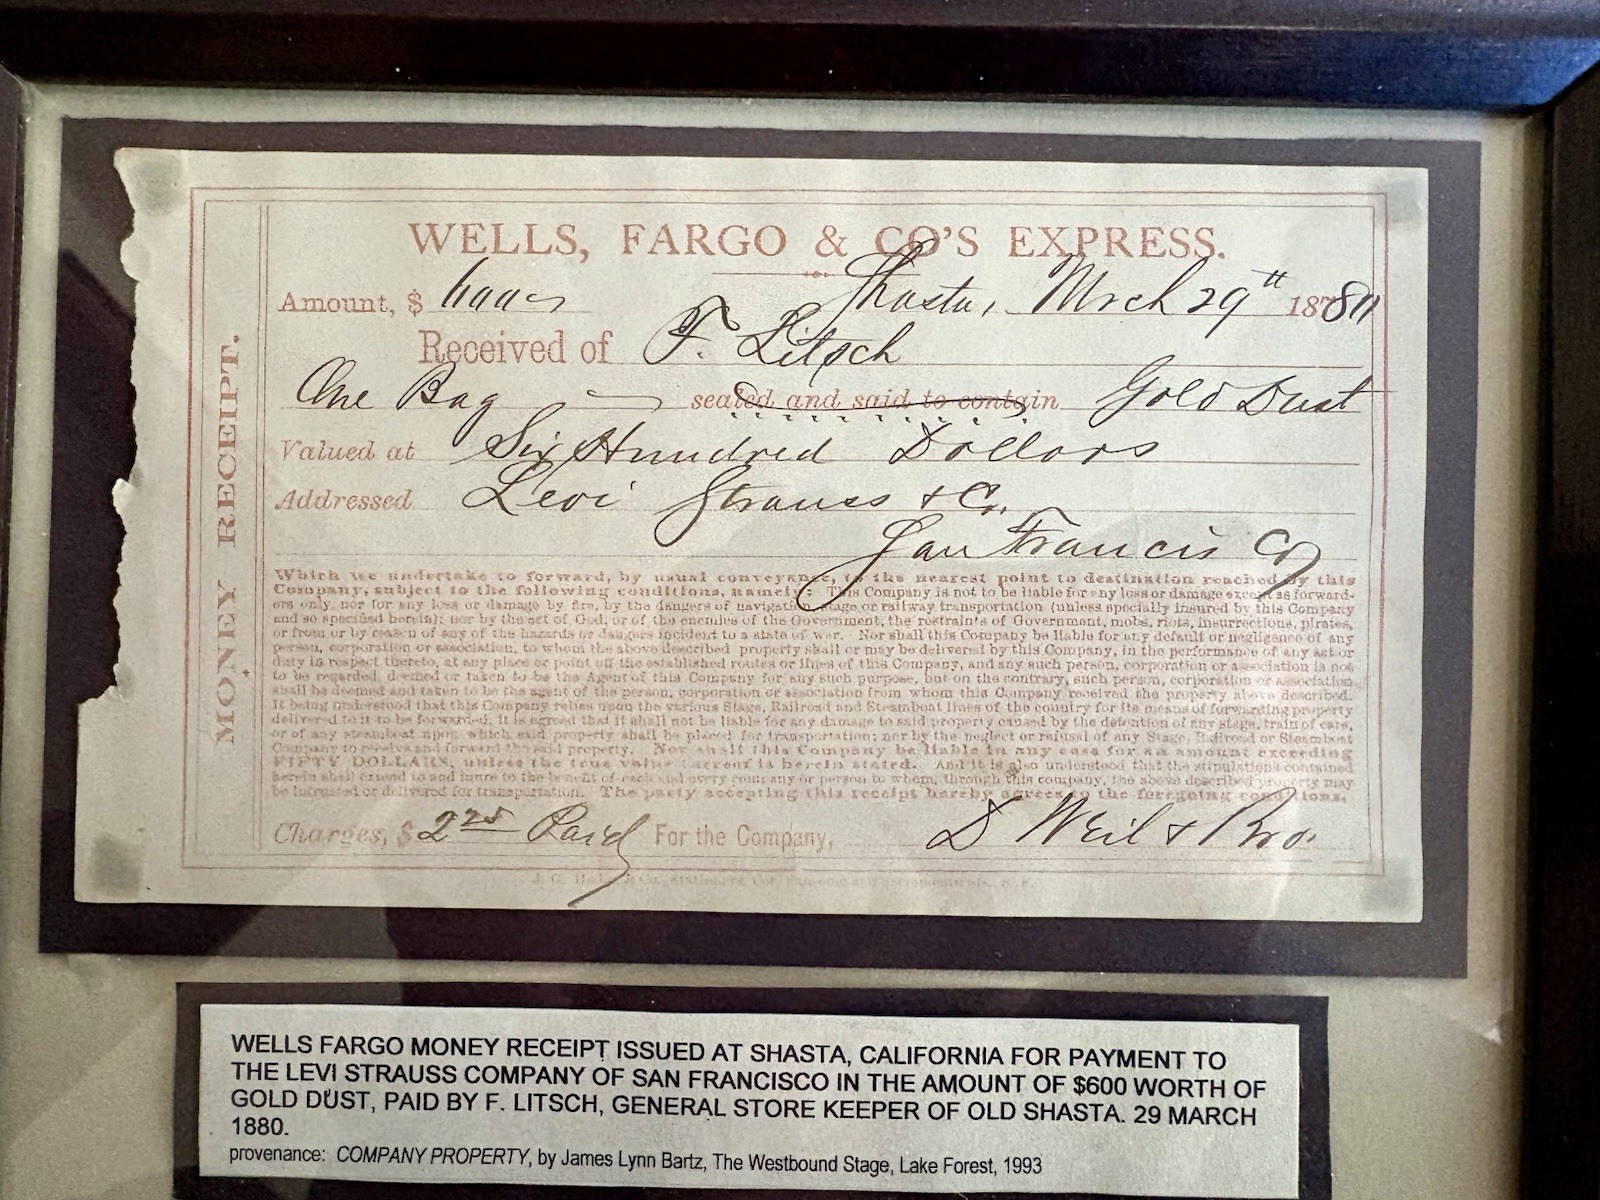 WELLS, FARGO & CO'S EXPRESS.
Amount, $ 600 Shasta, Mrch 29th 18780
Received of F. Litsch
One Bag sealed and said to contain Gold Dust
Valued at Six Hundred Dollars
Addressed Levi Strauss & Co.
San Francisco
MONEY RECEIPT.
Which we undertake to forward, by usual conveyance, to the nearest point to destination reached by this
Company, subject to the following conditions, namely: This Company is not to be liable for any loss or damage except as forward-
ers only, nor for any loss or damage by fire, by the dangers of navigation, stage or railway transportation (unless specially insured by this Company
and so specified herein); nor by the act of God, or of the enemies of the Government, the restraints of Government, mobs, riots, insurrections, pirates,
or from or by reason of any of the hazards or dangers incident to a state of war. Nor shall this Company be liable for any default or negligence of any
person, corporation or association, to whom the above described property shall or may be delivered by this Company, in the performance of any act or
duty in respect thereto, at any place or point off the established routes or lines of this Company, and any such person, corporation or association is not
to be regarded, deemed or taken to be the Agent of this Company for any such purpose, but on the contrary, such person, corporation or association
shall be deemed and taken to be the agent of the person, corporation or association from whom this Company received the property above described.
It being understood that this Company relies upon the various Stage, Railroad and Steamboat lines of the country for its means of forwarding property
delivered to it to be forwarded, it is agreed that it shall not be liable for any damage to said property caused by the detention of any stage, train of cars,
or of any steamboat upon which said property shall be placed for transportation; nor by the neglect or refusal of any Stage, Railroad or Steamboat
Company to receive and forward the said property. Nor shall this Company be liable in any case for an amount exceeding
FIFTY DOLLARS, unless the true value thereof is herein stated. And it is also understood that the stipulations contained
herein shall extend to and inure to the benefit of each and every company or person to whom, through this company, the above described property may
be intrusted or delivered for transportation. The party accepting this receipt hereby agrees to the foregoing conditions.
Charges, $ 2 25 Paid For the Company, D Weil & Bro.
WELLS FARGO MONEY RECEIPT ISSUED AT SHASTA, CALIFORNIA FOR PAYMENT TO
THE LEVI STRAUSS COMPANY OF SAN FRANCISCO IN THE AMOUNT OF $600 WORTH OF
GOLD DUST, PAID BY F. LITSCH, GENERAL STORE KEEPER OF OLD SHASTA. 29 MARCH
1880.
provenance: COMPANY PROPERTY, by James Lynn Bartz, The Westbound Stage, Lake Forest, 1993